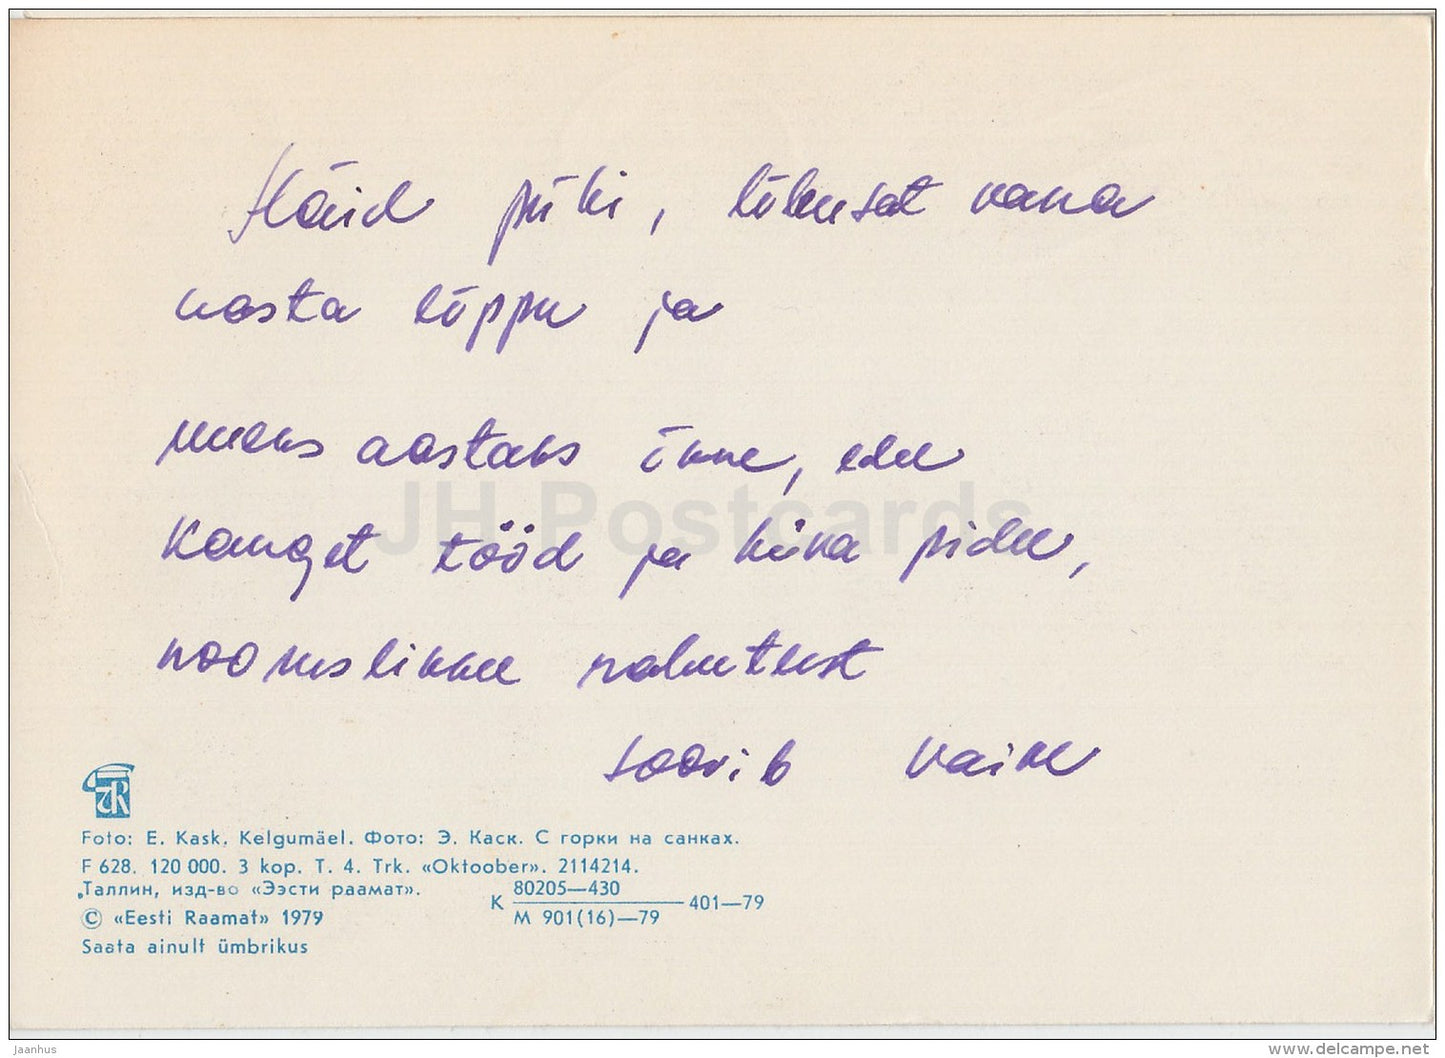 Häid pühi, lõbusat vana
aasta lõppu ja
uueks aastaks õnne, edu
kanget tööd ja kõva pidu,
noorusliku
soovib Vaike
JH Postcards
Foto: E. Kask. Kelgumäel. Фото: Э. Каск. С горки на санках.
F 628. 120 000. 3 kop. T. 4. Trk. «Oktoober». 2114214.
Таллин, изд-во «Ээсти раамат».
К 80205—430 401—79
М 901(16)—79
© «Eesti Raamat» 1979
Saata ainult ümbrikus
jaanhus
www.delcampe.net